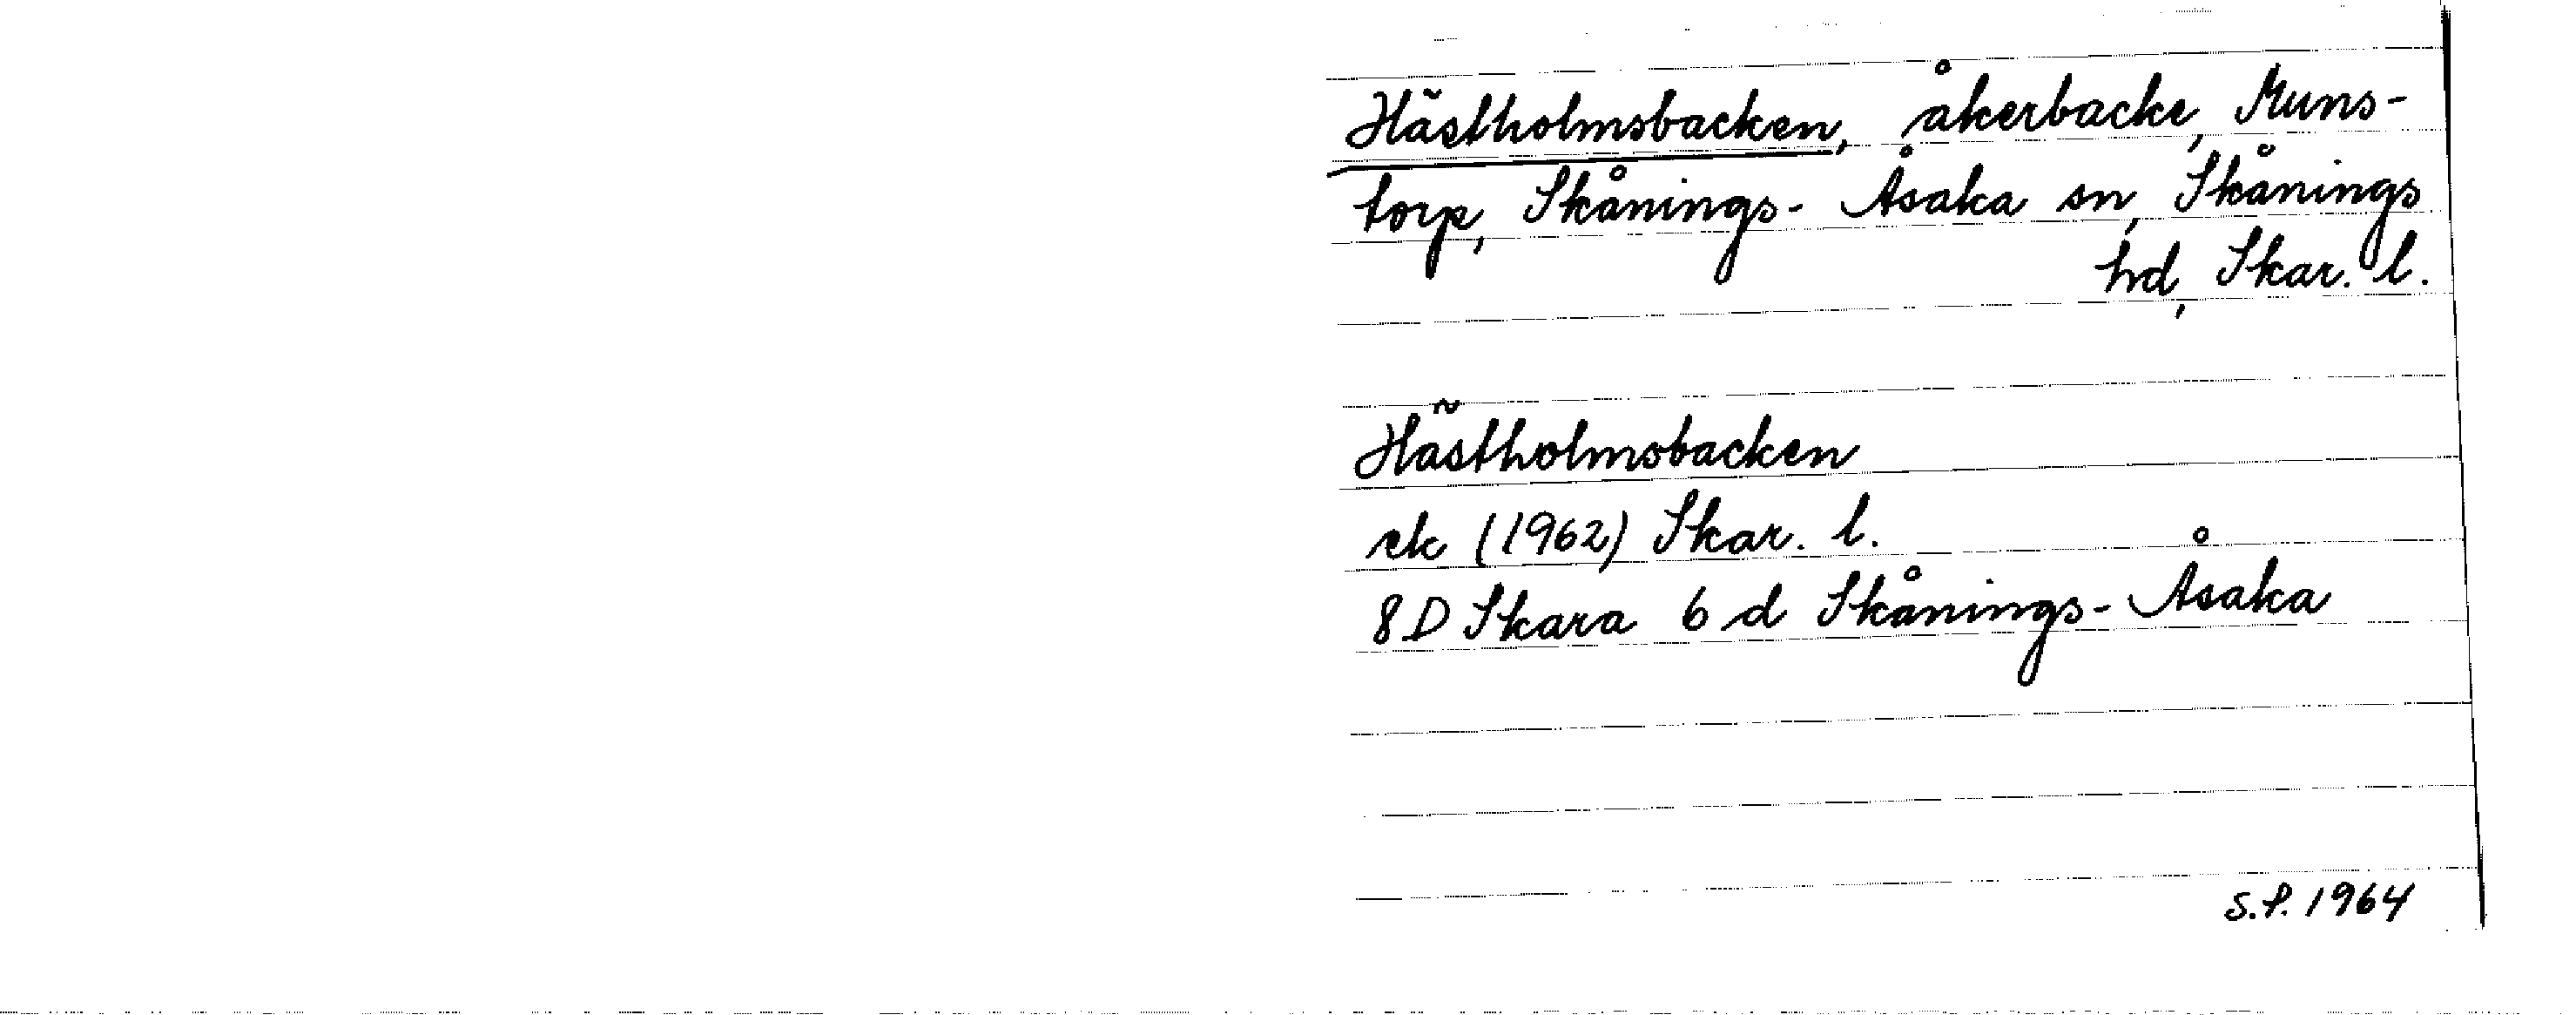 Hästholmsbacken, åkerbacke, Muns-
torp, Skånings-Åsaka sn, Skånings
hd, Skar. l.
Hästholmsbacken
ek (1962) Skar. l.
8D Skara 6 d Skånings-Åsaka
S.P. 1964